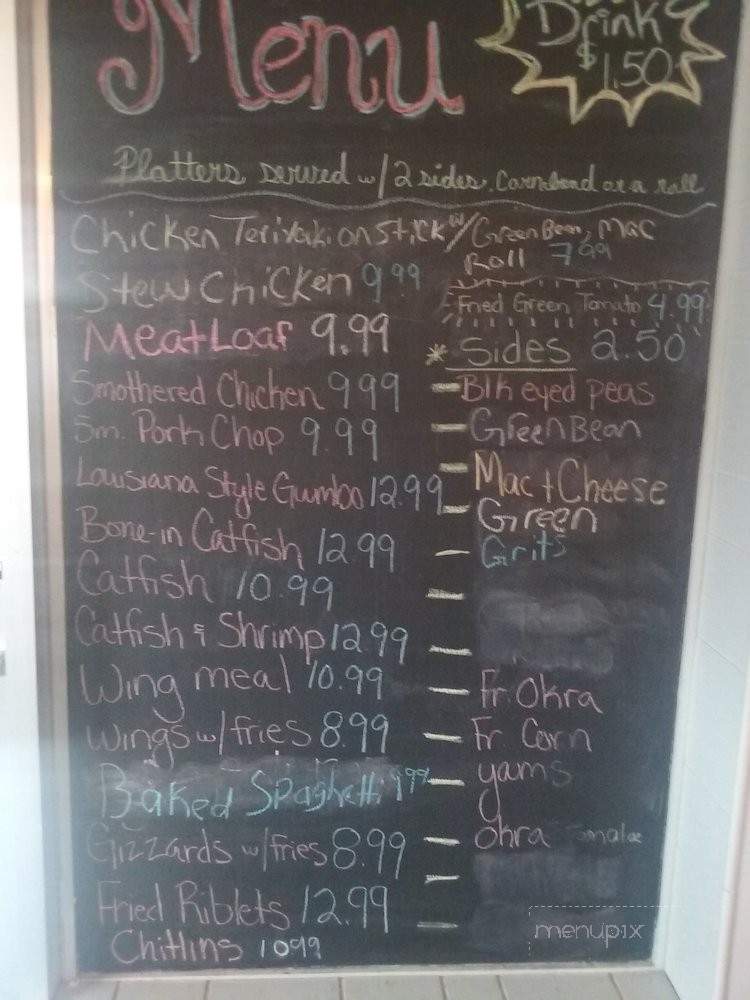 Menu
Drink
$1.50
Platters served w/ 2 sides. Cornbread or a roll
Chicken Teriyaki on stick w/ Green Bean, Mac
Roll 7.99
Stew Chicken 9.99
Fried Green Tomato 4.99
Meat Loaf 9.99
* Sides 2.50
Smothered Chicken 9.99
- Blk eyed peas
Sm. Pork Chop 9.99
- Green Bean
Louisiana Style Gumbo 12.99
- Mac + Cheese
- Green
Bone-in Catfish 12.99
- Grits
Catfish 10.99
Catfish & Shrimp 12.99
Wing meal 10.99
- Fr. Okra
Wings w/fries 8.99
- Fr. Corn
Baked Spaghetti 9.99
- yams
Gizzards w/fries 8.99
- Okra
Fried Riblets 12.99
Chitlins 10.99
menupix